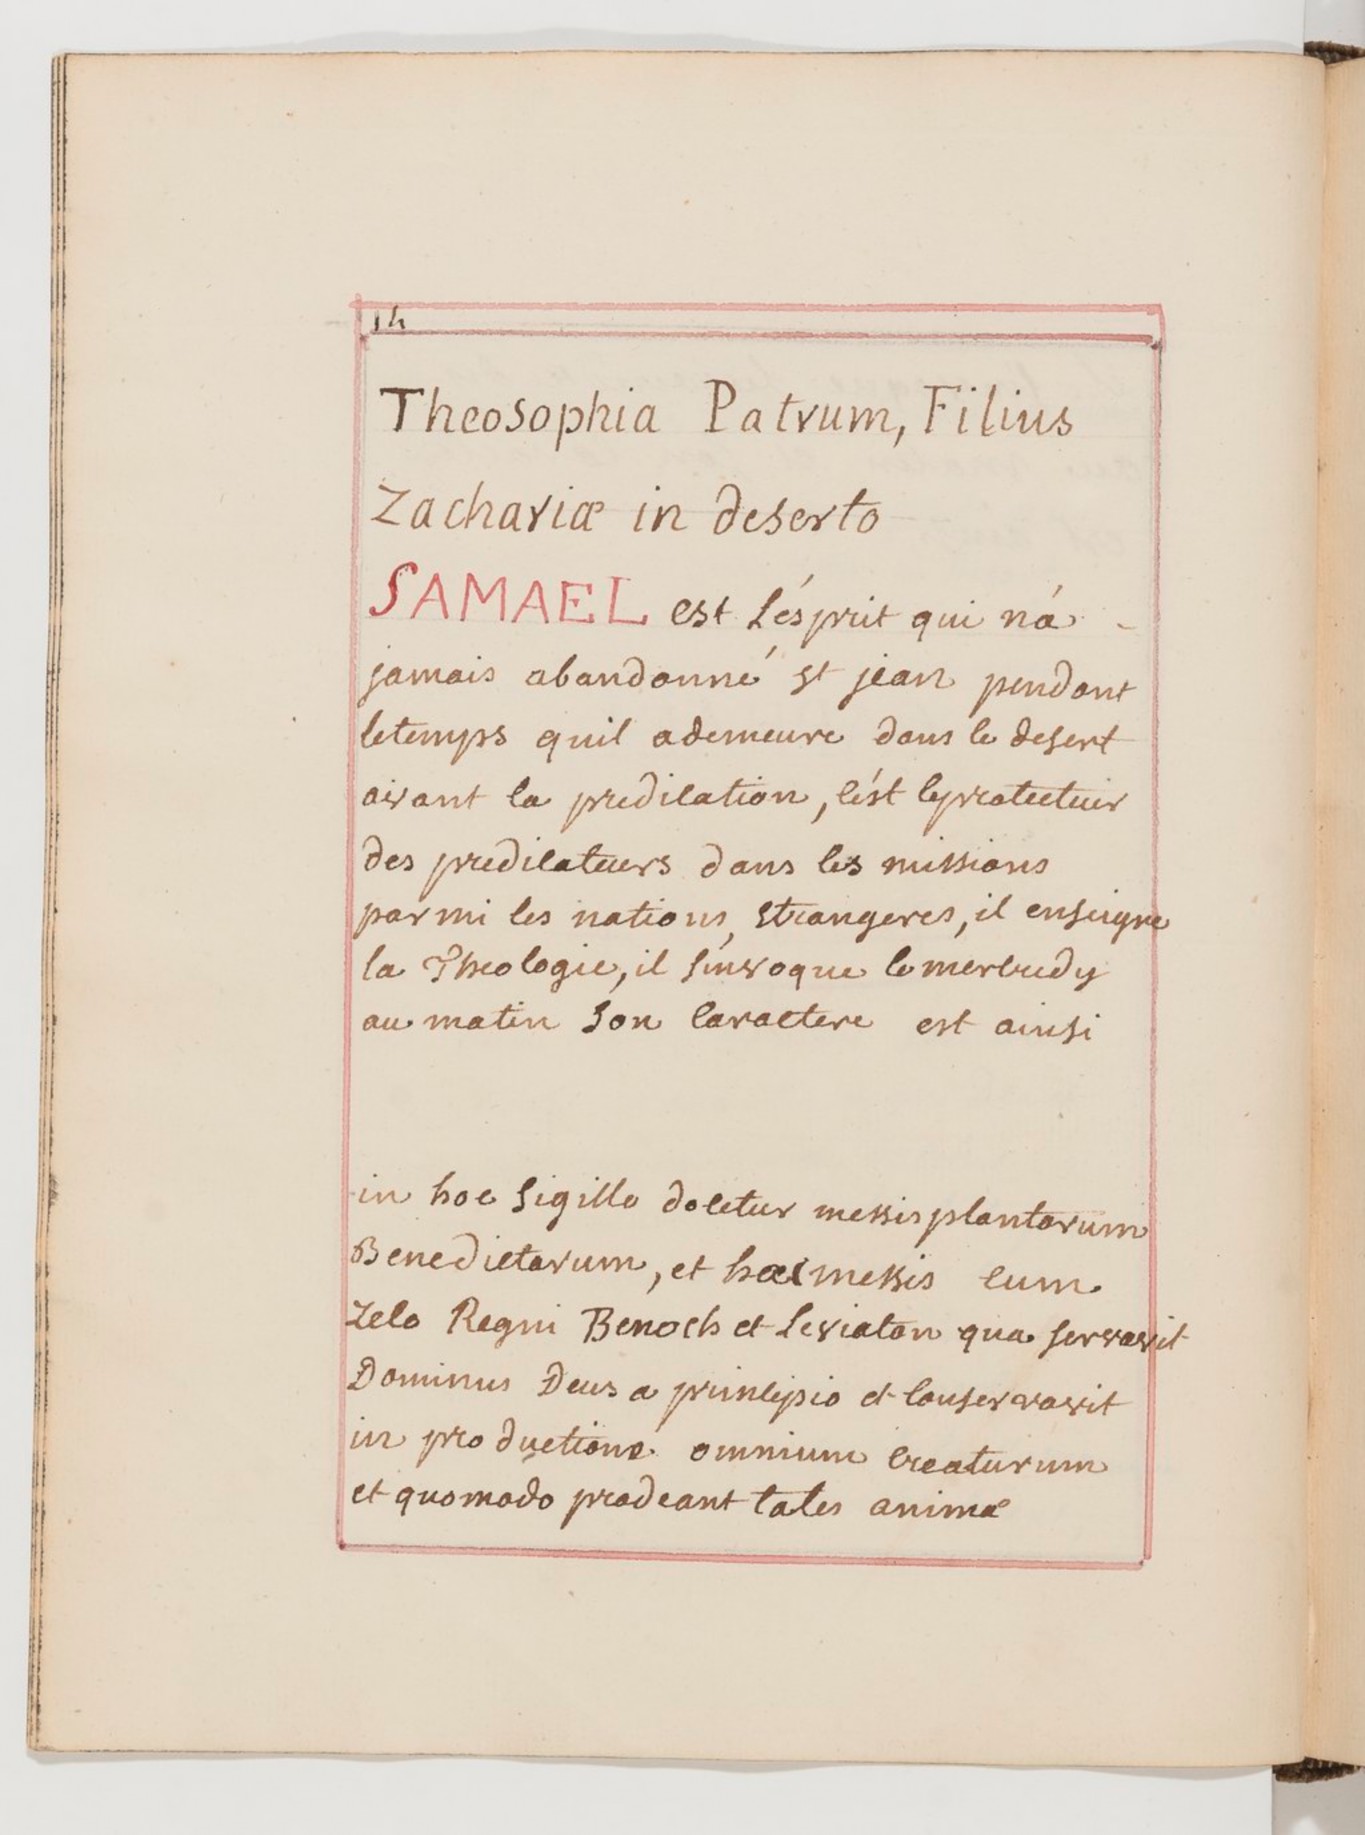 14
Theosophia Patrum, Filius
Zachariæ in deserto
SAMAEL est L'ésprit qui n'á
jamais abandonné st jean pendant
letemps quil ademeure dans le desert
avant la predication, c'ést leprotecteur
des predicateurs dans les missions
parmi les nations, Etrangeres, il enseigne
la Theologie, il s'invoque le mercredy
au matin son caractere est ainsi
in hoc sigillo docetur messis plantarum
Benedictarum, et hæc messis cum
zelo Regni Benoch et Leviatan qua servavit
Dominus Deus a principio et conservavit
in productione omnium creaturum
et quomodo prodeant tales animæ